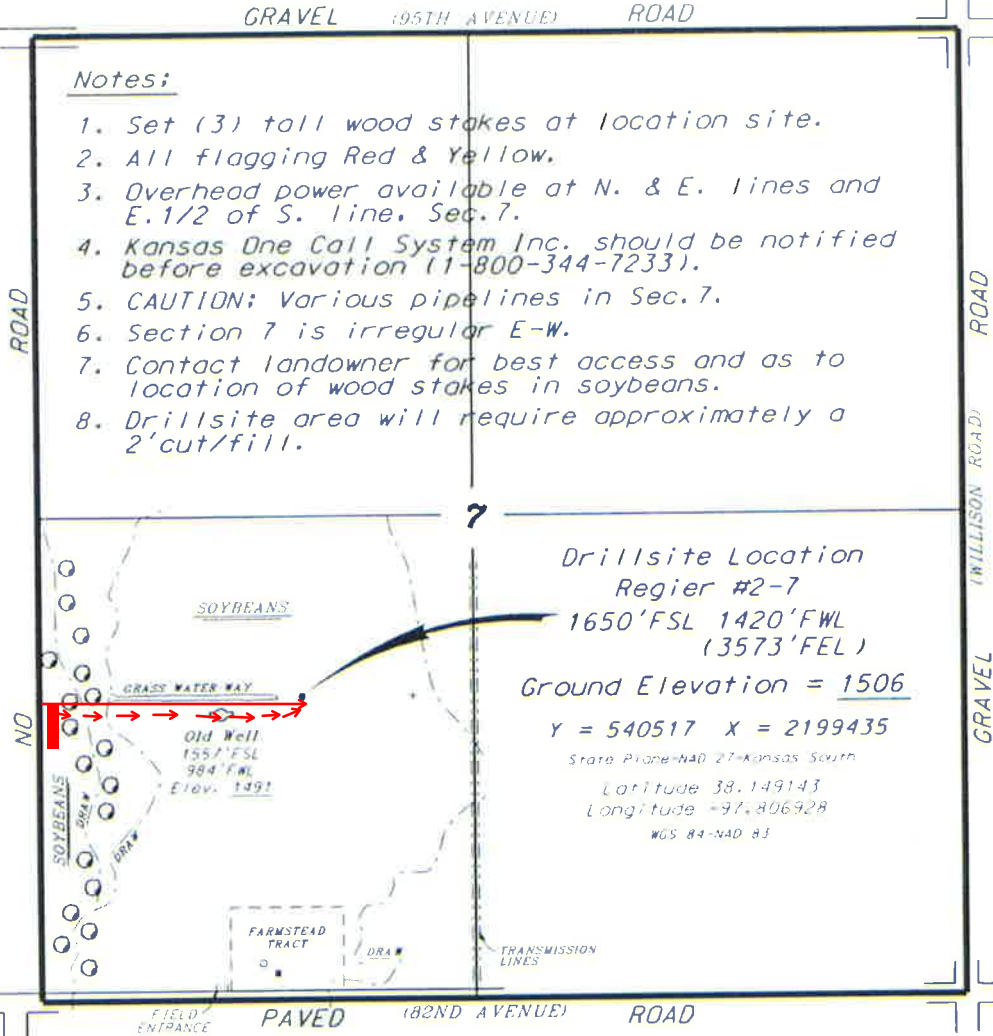 GRAVEL (95TH AVENUE) ROAD
Notes:
1. Set (3) tall wood stakes at location site.
2. All flagging Red & Yellow.
3. Overhead power available at N. & E. lines and
E.1/2 of S. line. Sec.7.
4. Kansas One Call System Inc. should be notified
before excavation (1-800-344-7233).
5. CAUTION: Various pipelines in Sec.7.
6. Section 7 is irregular E-W.
7. Contact landowner for best access and as to
location of wood stakes in soybeans.
8. Drillsite area will require approximately a
2'cut/fill.
NO ROAD
GRAVEL (WILLISON ROAD) ROAD
7
Drillsite Location
Regier #2-7
1650'FSL 1420'FWL
(3573'FEL)
Ground Elevation = 1506
Y = 540517 X = 2199435
State Plane-NAD 27-Kansas South
Latitude 38.149143
Longitude -97.806928
WGS 84-NAD 83
SOYBEANS
GRASS WATER WAY
Old Well
1557'FSL
984'FWL
Elev. 1491
SOYBEANS
DRAW
DRAW
FARMSTEAD
TRACT
DRAW
TRANSMISSION
LINES
FIELD
ENTRANCE
PAVED (82ND AVENUE) ROAD